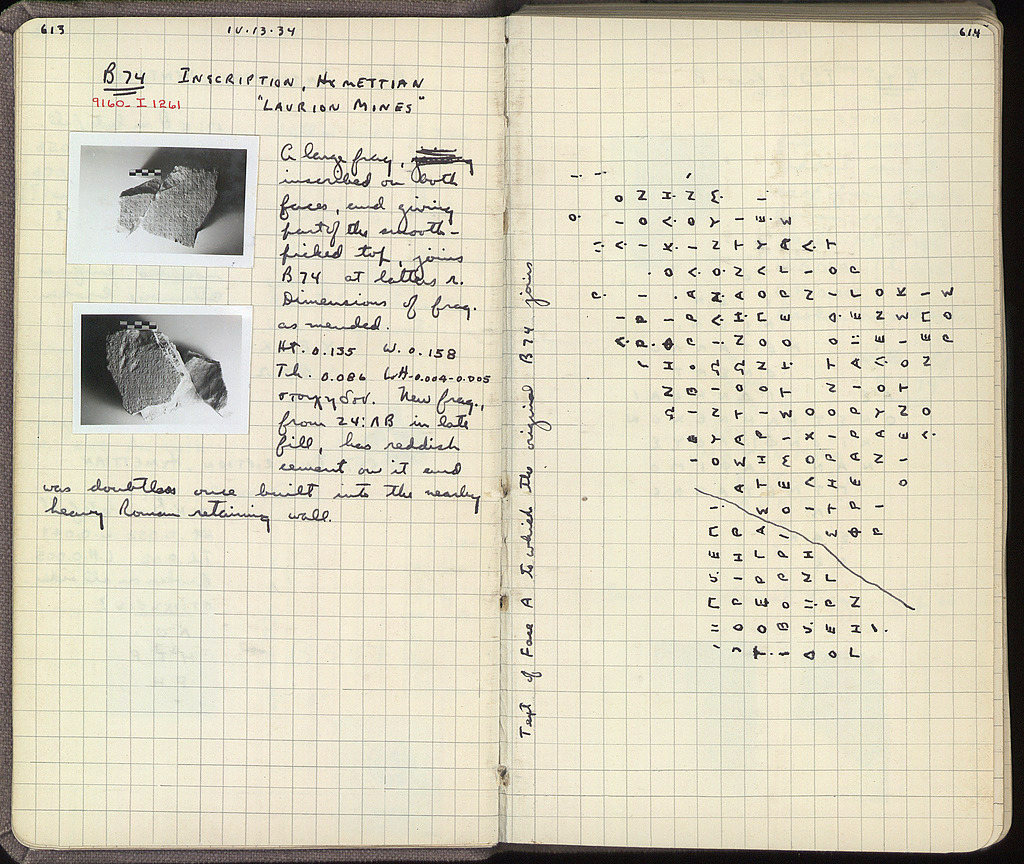 613
IV·13·34
B 74 INSCRIPTION, HYMETTIAN
9160- I 1261
"LAURION MINES"
A large frag.,
inscribed on both
faces, and giving
part of the smooth-
picked top, joins
B 74 at latters r.
Dimensions of frag.
as mended.
Ht. 0.135 W. 0.158
Th. 0.086 LH-0.004-0.005
στοιχηδόν. New frag.,
from 24:ΛΒ in late
fill, has reddish
cement on it and
was doubtless once built into the nearby
heavy Roman retaining wall.
614
Text of Face A to which the original B 74 joins
Ω Ν Η Φ Ι Ο Κ Λ Η
Ι Β Ο Ρ Ρ Α Λ Ι Ο Ν
Ο Ρ Ι Η Ρ Α Σ Α Τ Ο Ω Ν Η Α Ν Τ Ι
Τ Ο Ε Ρ Γ Α Σ Τ Η Ρ Ι Ο Ν Ο Π Ο Λ Υ Ε Ι
Ι Β Ο Ρ Ρ Ι Ο Ε Μ Ι Σ Τ Τ Ο Ε Ρ Γ Α Σ
Ι Λ Ο Χ Ο Ν Ι Λ
Ο Ε Ρ Γ Σ Τ Η Ρ Ι Ο Ν Τ Ο Δ Ι Ο Τ
Γ Η Ν Φ Ρ Ε Α Ρ Ρ Ι Α Π Ε Γ Ρ
Ρ Ι Ν Α Υ Ο Λ Ε Ν Ο
Ο Ι Ε Ν Τ Ο Ι Σ Κ
Λ Ο Ν Ε Π Ι
Ρ Ο Σ